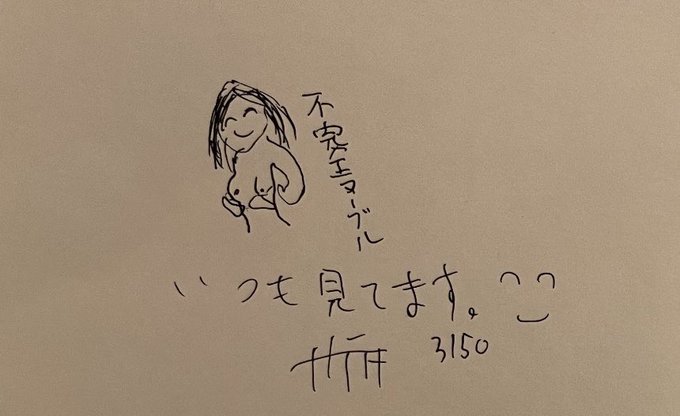 不完全ヌーブル
いつも見てます。
3150